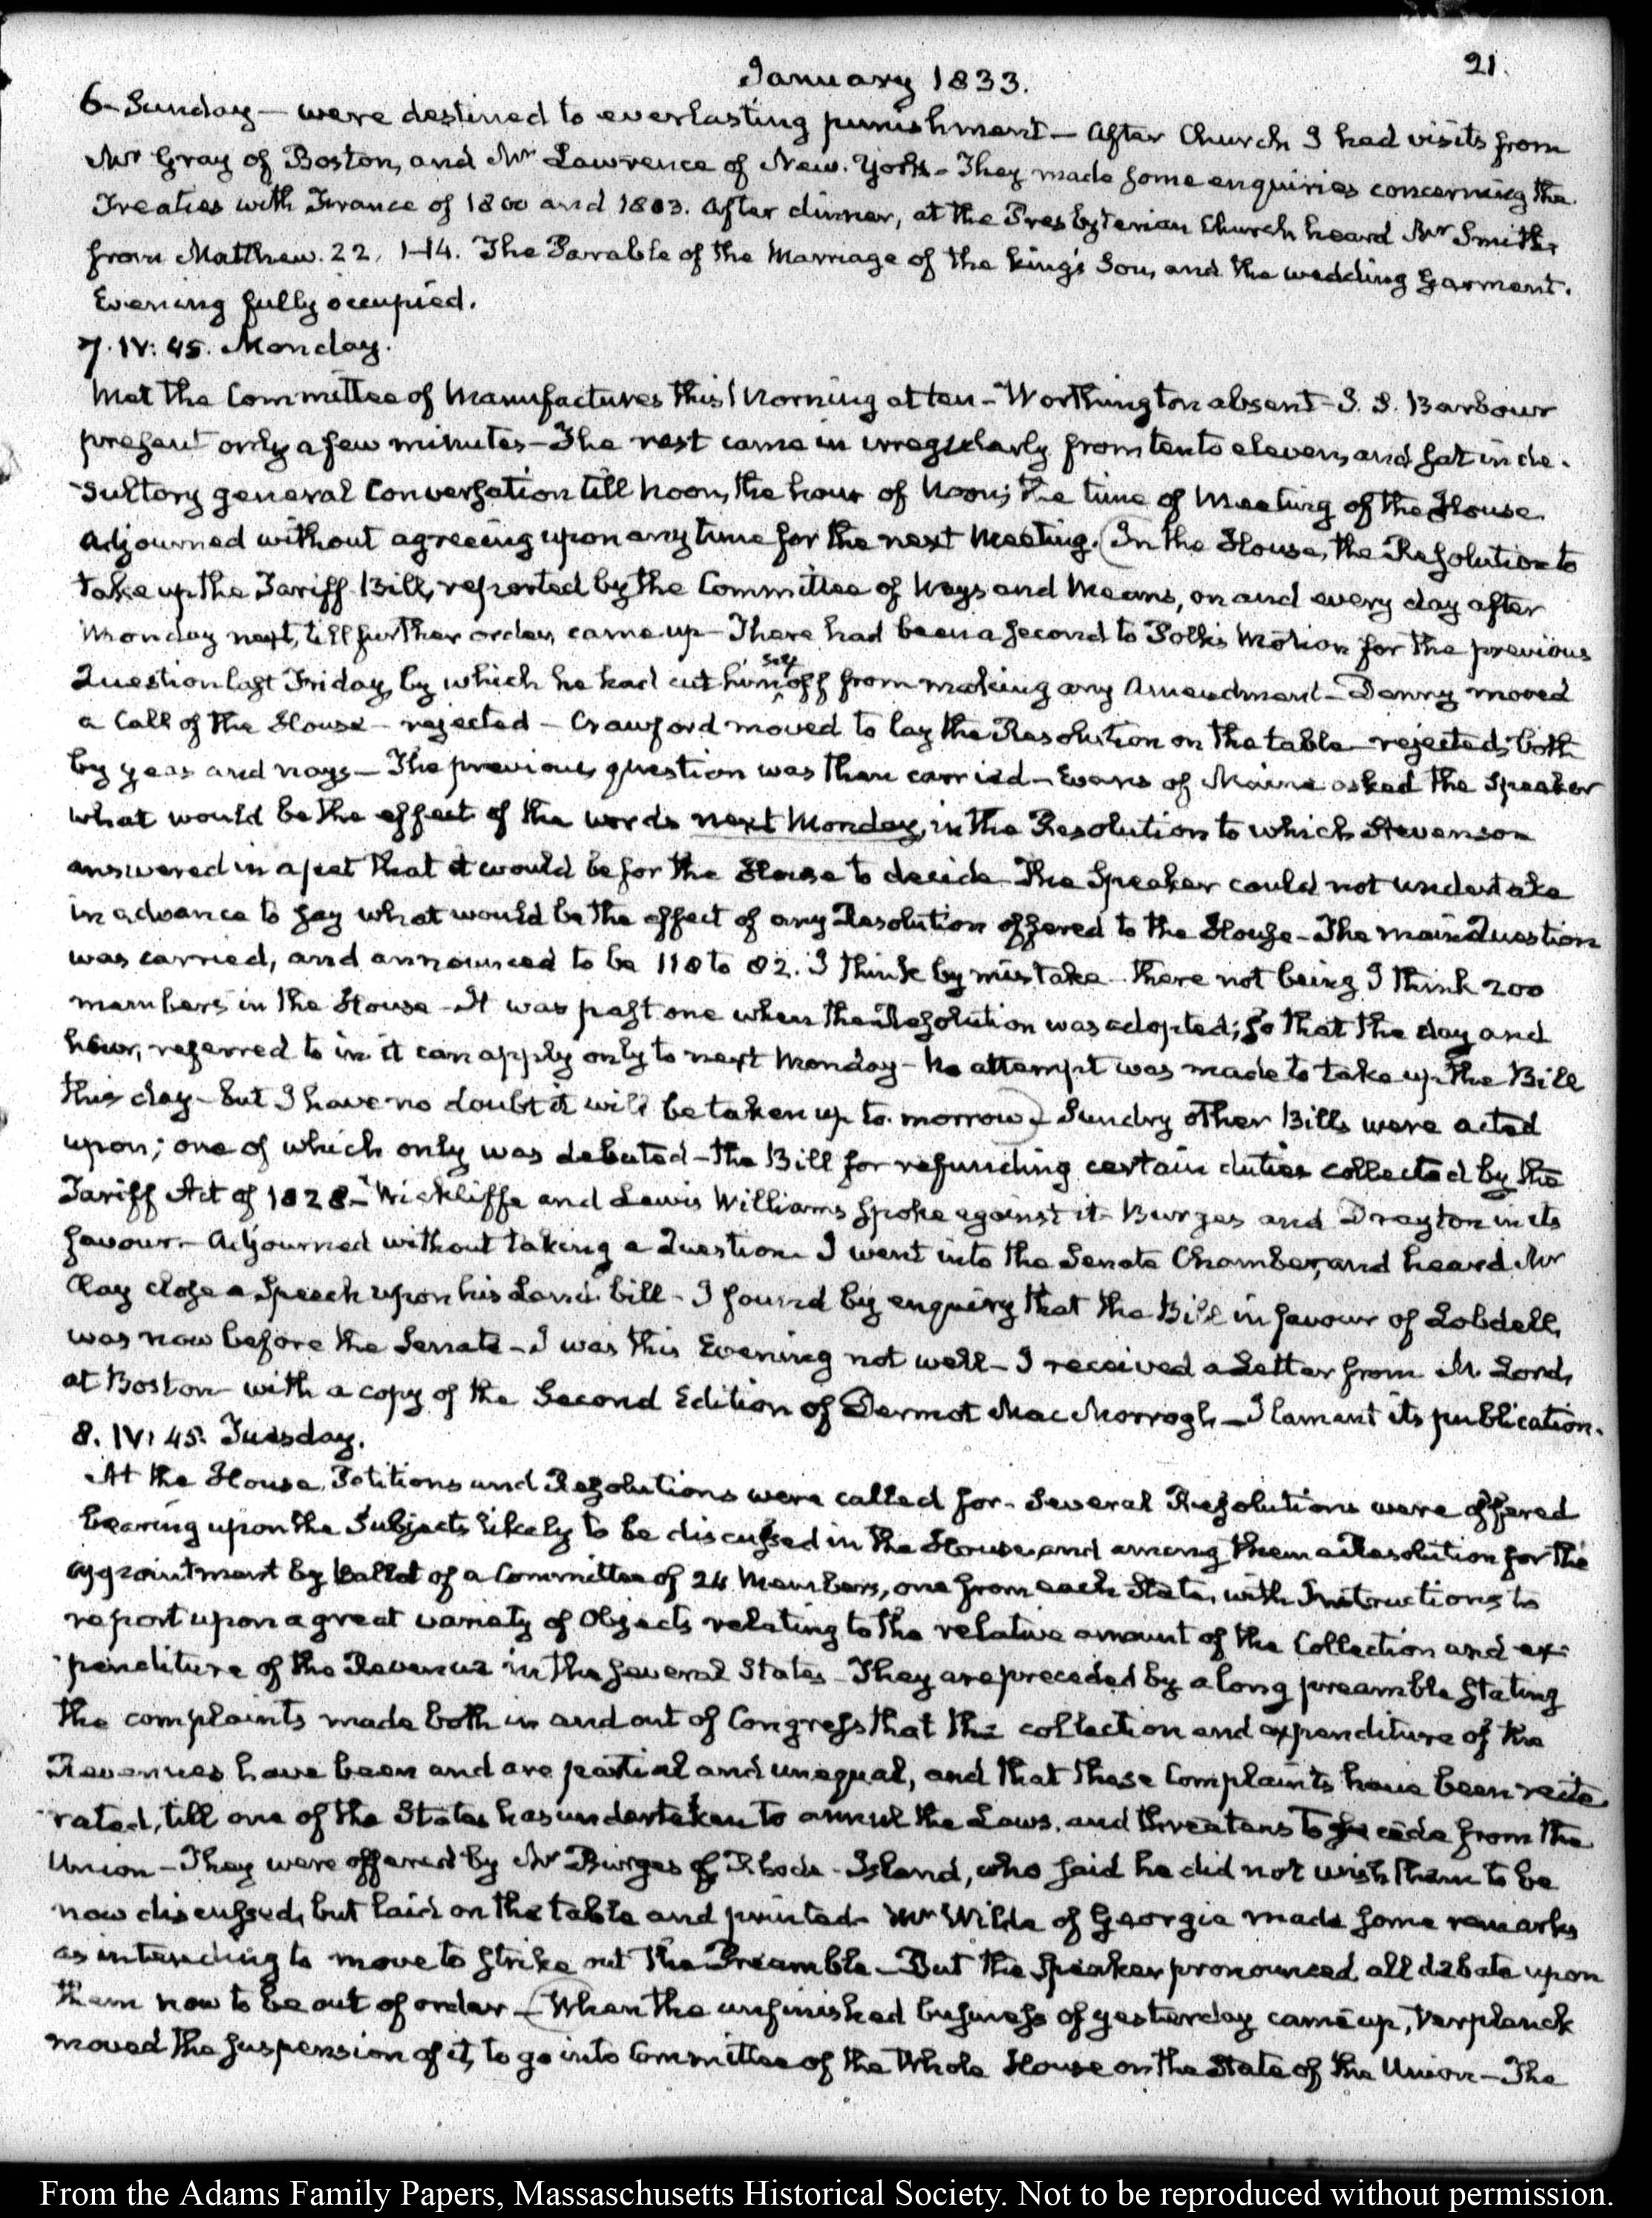 21.
January 1833.
6. Sunday — were destined to everlasting punishment — After Church I had visits from
Mr Gray of Boston, and Mr Lawrence of New-York — They made some enquiries concerning the
Treaties with France of 1800 and 1803. After dinner, at the Presbyterian Church heard Mr Smith,
from Matthew. 22, 1–14. The Parable of the Marriage of the king's Son, and the wedding Garment.
Evening fully occupied.
7. IV: 45. Monday.
Met the Committee of Manufactures this Morning at ten — Worthington absent — J. S. Barbour
present only a few minutes — The rest came in irregularly from ten to eleven, and sat in de-
sultory general Conversation till Noon, the hour of Noon; the time of Meeting of the House
Adjourned without agreeing upon any time for the next Meeting. (In the House, the Resolution to
take up the Tariff Bill, reported by the Committee of Ways and Means, on and every day after
Monday next, till further order, came up — There had been a second to Polk's Motion for the previous
Question last Friday, by which he had cut himself off from making any Amendment — Denny moved
a Call of the House — rejected — Crawford moved to lay the Resolution on the table — rejected, both
by yeas and nays — The previous question was then carried — Evans of Maine asked the Speaker
what would be the effect of the words next Monday, in the Resolution to which Stevenson
answered in a pet that it would be for the House to decide The Speaker could not undertake
in advance to say what would be the effect of any Resolution offered to the House — The main Question
was carried, and announced to be 118 to 82. I think by mistake — there not being I think 200
members in the House — It was past one when the Resolution was adopted; so that the day and
hour, referred to in it can apply only to next Monday — no attempt was made to take up the Bill
this day — but I have no doubt it will be taken up to-morrow) — Sundry other Bills were acted
upon; one of which only was debated — the Bill for refunding certain duties collected by the
Tariff Act of 1828 — Wickliffe and Lewis Williams spoke against it — Burges and Drayton in its
favour — Adjourned without taking a Question I went into the Senate Chamber, and heard Mr
Clay close a Speech upon his Land bill — I found by enquiry that the Bill in favour of Lobdell,
was now before the Senate — I was this Evening not well — I received a Letter from M. Lord,
at Boston with a copy of the Second Edition of Dermot MacMorrogh — I lament its publication.
8. IV: 45. Tuesday.
At the House, Petitions and Resolutions were called for — Several Resolutions were offered
bearing upon the Subjects likely to be discussed in the House, and among them a Resolution for the
appointment by Ballot of a Committee of 24 Members, one from each State, with Instructions to
report upon a great variety of Objects relating to the relative amount of the Collection and ex-
penditure of the Revenue in the several States — They are preceded by a long preamble stating
the complaints made both in and out of Congress that the collection and expenditure of the
Revenues have been and are partial and unequal, and that these Complaints have been reite-
rated, till one of the States has undertaken to annul the Laws, and threatens to secede from the
Union — They were offered by Mr Burges of Rhode-Island, who said he did not wish them to be
now discussed, but laid on the table and printed — Mr Wilde of Georgia made some remarks
as intending to move to strike out the Preamble — But the Speaker pronounced all debate upon
them now to be out of order — (When the unfinished business of yesterday came up, Verplanck
moved the suspension of it, to go into Committee of the Whole House on the State of the Union — The
From the Adams Family Papers, Massaschusetts Historical Society. Not to be reproduced without permission.